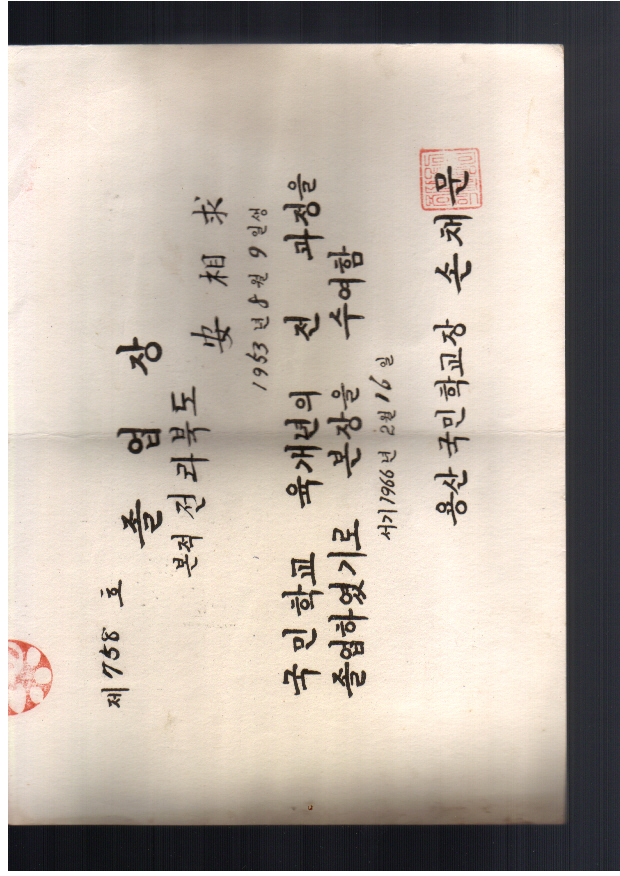 제 758 호
졸 업 장
본적 전라북도
安 相 求
1953 년 8 월 9 일생
국민학교 육개년의 전 과정을
졸업하였기로 본장을 수여함
서기 1966 년 2월 16 일
용산 국민학교장 손채문